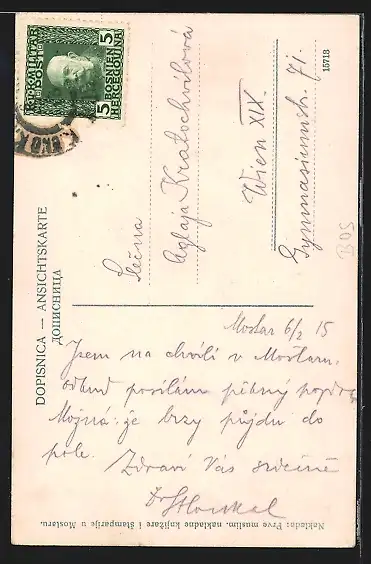 K. UND K. MILITÄR POST
5 5
BOSNIEN HERCEGOVINA
DOPISNICA — ANSICHTSKARTE
ДОПИСНИЦА
Slečna
Aglaja Kratochvilová
Wien XIX.
Gymnasiumstr. 71.
15713
BOS
Mostar 6/2 15
Jsem na chvíli v Mostaru,
odtud posílám pěkný pozdrav
Možná že brzy půjdu do
pole. Zdraví Vás srdečně
Naklada: Prve muslim. nakladne knjižare i štamparije u Mostaru.